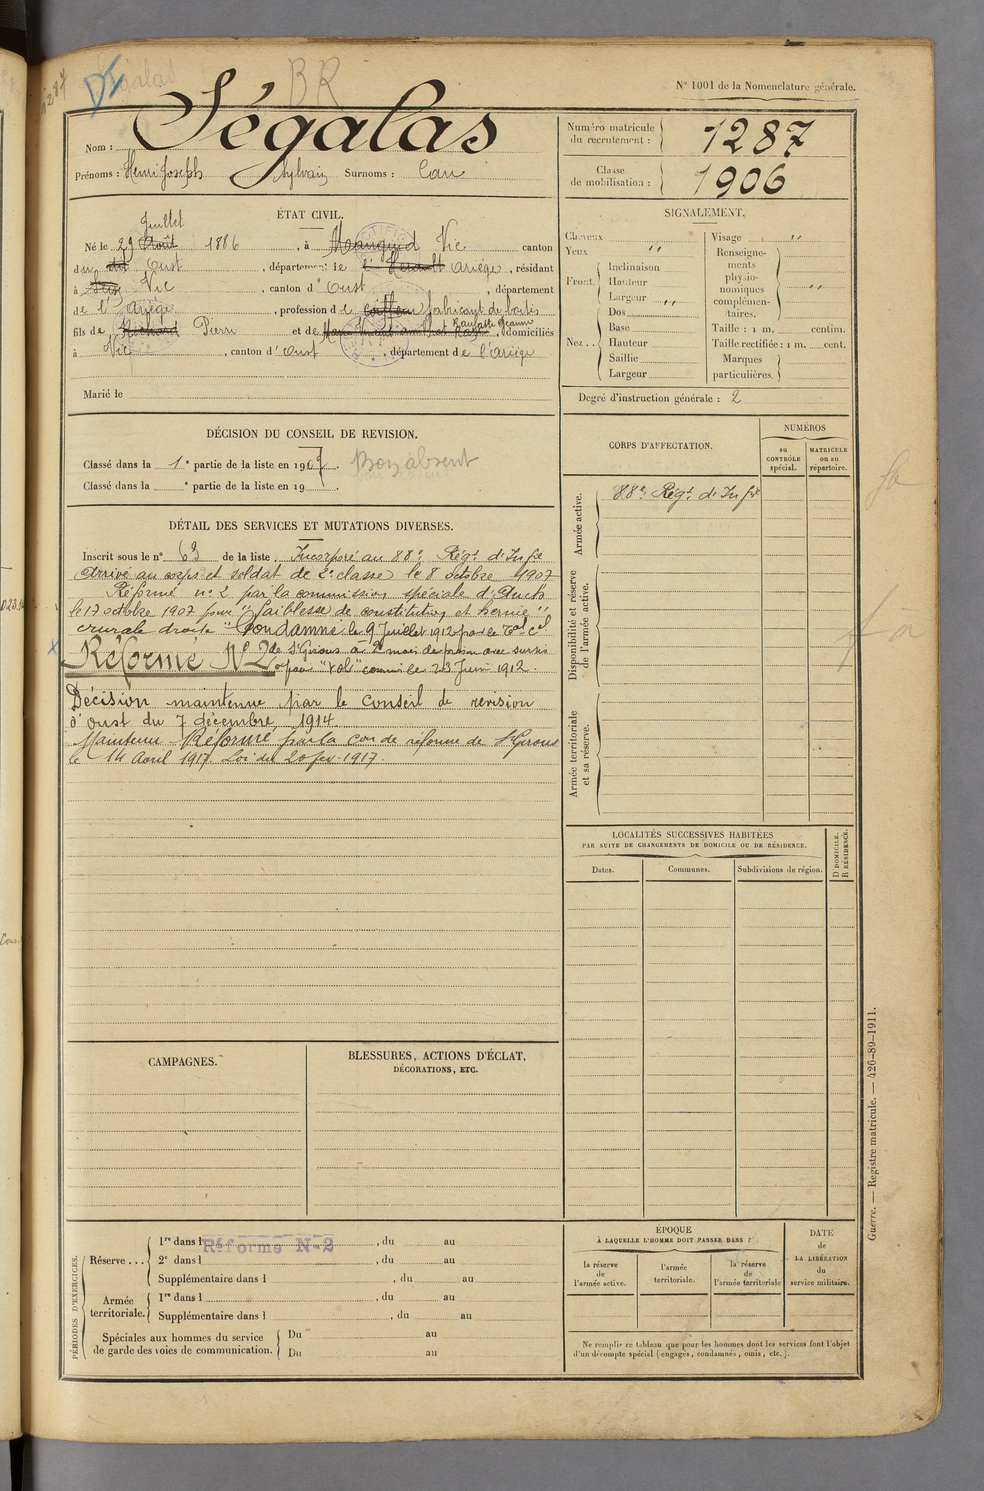 BR
N° 1001 de la Nomenclature générale.
Nom : Ségalas
Prénoms : Henri Joseph Sylvain Surnoms : Cau
Numéro matricule du recrutement : 1287
Classe de mobilisation : 1906
ÉTAT CIVIL.
Juillet
Né le 29 Août 1886, à Mauguio Vic canton
du dit Oust, département de l'Hérault Ariège, résidant
à Vic, canton d'Oust, département
de l'Ariège, profession de coiffeur fabricant de boîtes
fils de Pierre et de Jeanne, domiciliés
à Vic, canton d'Oust, département de l'Ariège
Marié le
SIGNALEMENT.
Cheveux
Yeux "
Front. Inclinaison
Hauteur
Largeur "
Nez.. Dos
Base
Hauteur
Saillie
Largeur
Visage "
Renseignements physionomiques complémentaires. "
Taille : 1 m. centim.
Taille rectifiée : 1 m. cent.
Marques particulières.
Degré d'instruction générale : 2
DÉCISION DU CONSEIL DE REVISION.
Classé dans la 1e partie de la liste en 1907. Bon absent
Classé dans la e partie de la liste en 19
CORPS D'AFFECTATION.
NUMÉROS
au CONTRÔLE spécial.
MATRICULE ou au répertoire.
Armée active.
88e Régt d'Infie
Disponibilité et réserve de l'armée active.
Armée territoriale et sa réserve.
DÉTAIL DES SERVICES ET MUTATIONS DIVERSES.
Inscrit sous le n° 63 de la liste. Incorporé au 88e Régt d'Infie
Arrivé au corps et soldat de 2e classe le 8 octobre 1907
Réformé n° 2 par la commission spéciale d'Auch
le 17 octobre 1907 pour "faiblesse de constitution et hernie"
crurale droite" Condamné le 9 Juillet 1912 par le Tal Cel
Réformé N° 2 de St Girons à 2 mois de prison avec sursis
pour "Vol" commis le 23 Juin 1912.
Décision maintenue par le Conseil de revision
d'Oust du 7 décembre 1914
Maintenu Réformé par la Con de réforme de St Girons
le 14 Avril 1917. Loi du 20 fév. 1917.
LOCALITÉS SUCCESSIVES HABITÉES
PAR SUITE DE CHANGEMENTS DE DOMICILE OU DE RÉSIDENCE.
Dates.
Communes.
Subdivisions de région.
D DOMICILE.
R RÉSIDENCE.
CAMPAGNES.
BLESSURES, ACTIONS D'ÉCLAT,
DÉCORATIONS, ETC.
PÉRIODES D'EXERCICES.
Réserve ... 1re dans l Réforme N-2, du au
2e dans l, du au
Supplémentaire dans l, du au
Armée territoriale. 1re dans l, du au
Supplémentaire dans l, du au
Spéciales aux hommes du service de garde des voies de communication. Du au
Du au
ÉPOQUE
À LAQUELLE L'HOMME DOIT PASSER DANS :
la réserve de l'armée active.
l'armée territoriale.
la réserve de l'armée territoriale
DATE de LA LIBÉRATION du service militaire.
Ne remplir ce tableau que pour les hommes dont les services font l'objet
d'un décompte spécial (engagés, condamnés, omis, etc.).
Guerre. — Registre matricule. — 426-89-1911.